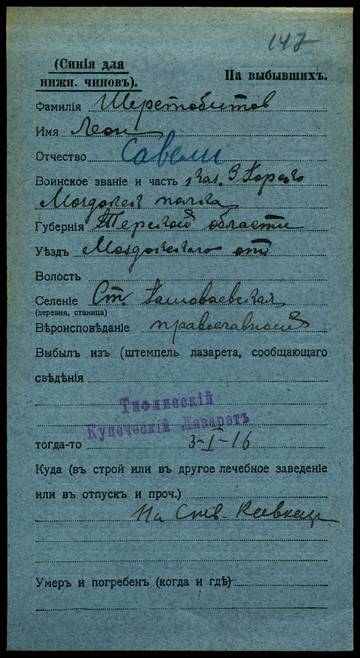 147
(Синія для
нижн. чиновъ).
На выбывшихъ.
Фамилія Шерстобитов
Имя Леон
Отчество Савели
Воинское званіе и часть каз. 3 Горско
Моздокск полка
Губернія Терской области
Уѣздъ Моздокскаго от
Волость
Селеніе Ст.
(деревня, станица)
Вѣроисповѣданіе православный
Выбылъ изъ (штемпель лазарета, сообщающаго
свѣдѣнія
Тифлисскій
Купеческій Лазаретъ
тогда-то 3-I-16
Куда (въ строй или въ другое лечебное заведеніе
или въ отпускъ и проч.)
На Кавказ
Умеръ и погребенъ (когда и гдѣ)